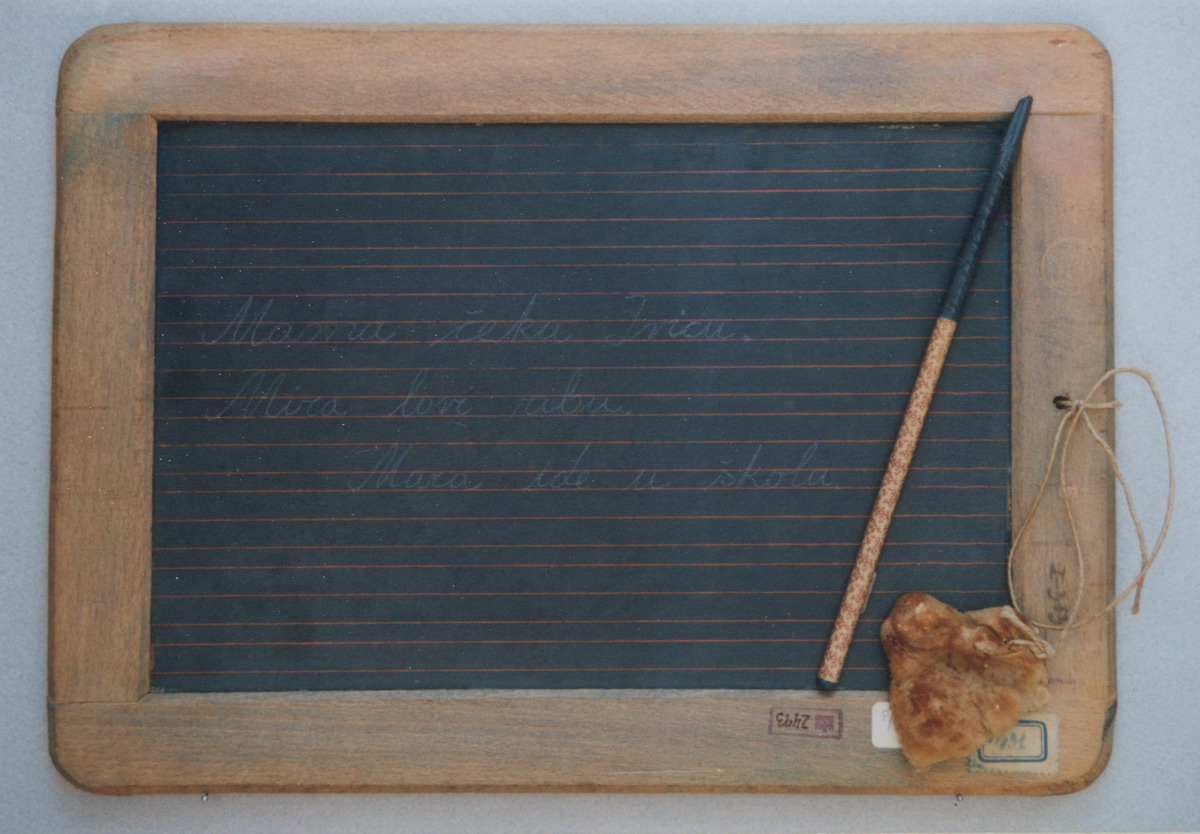 Mama čeka Ivicu.
Mira lovi ribu.
Mara ide u školu.
2493